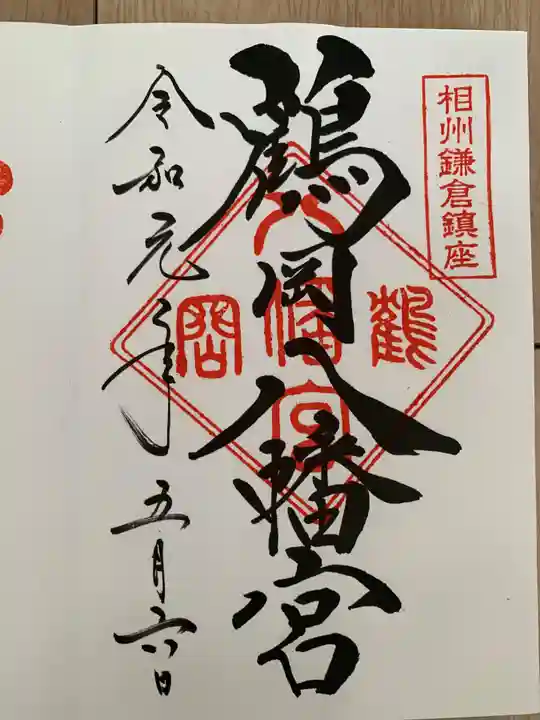 相州鎌倉鎮座
鶴岡八幡宮
鶴岡
八幡宮
令和元年五月六日